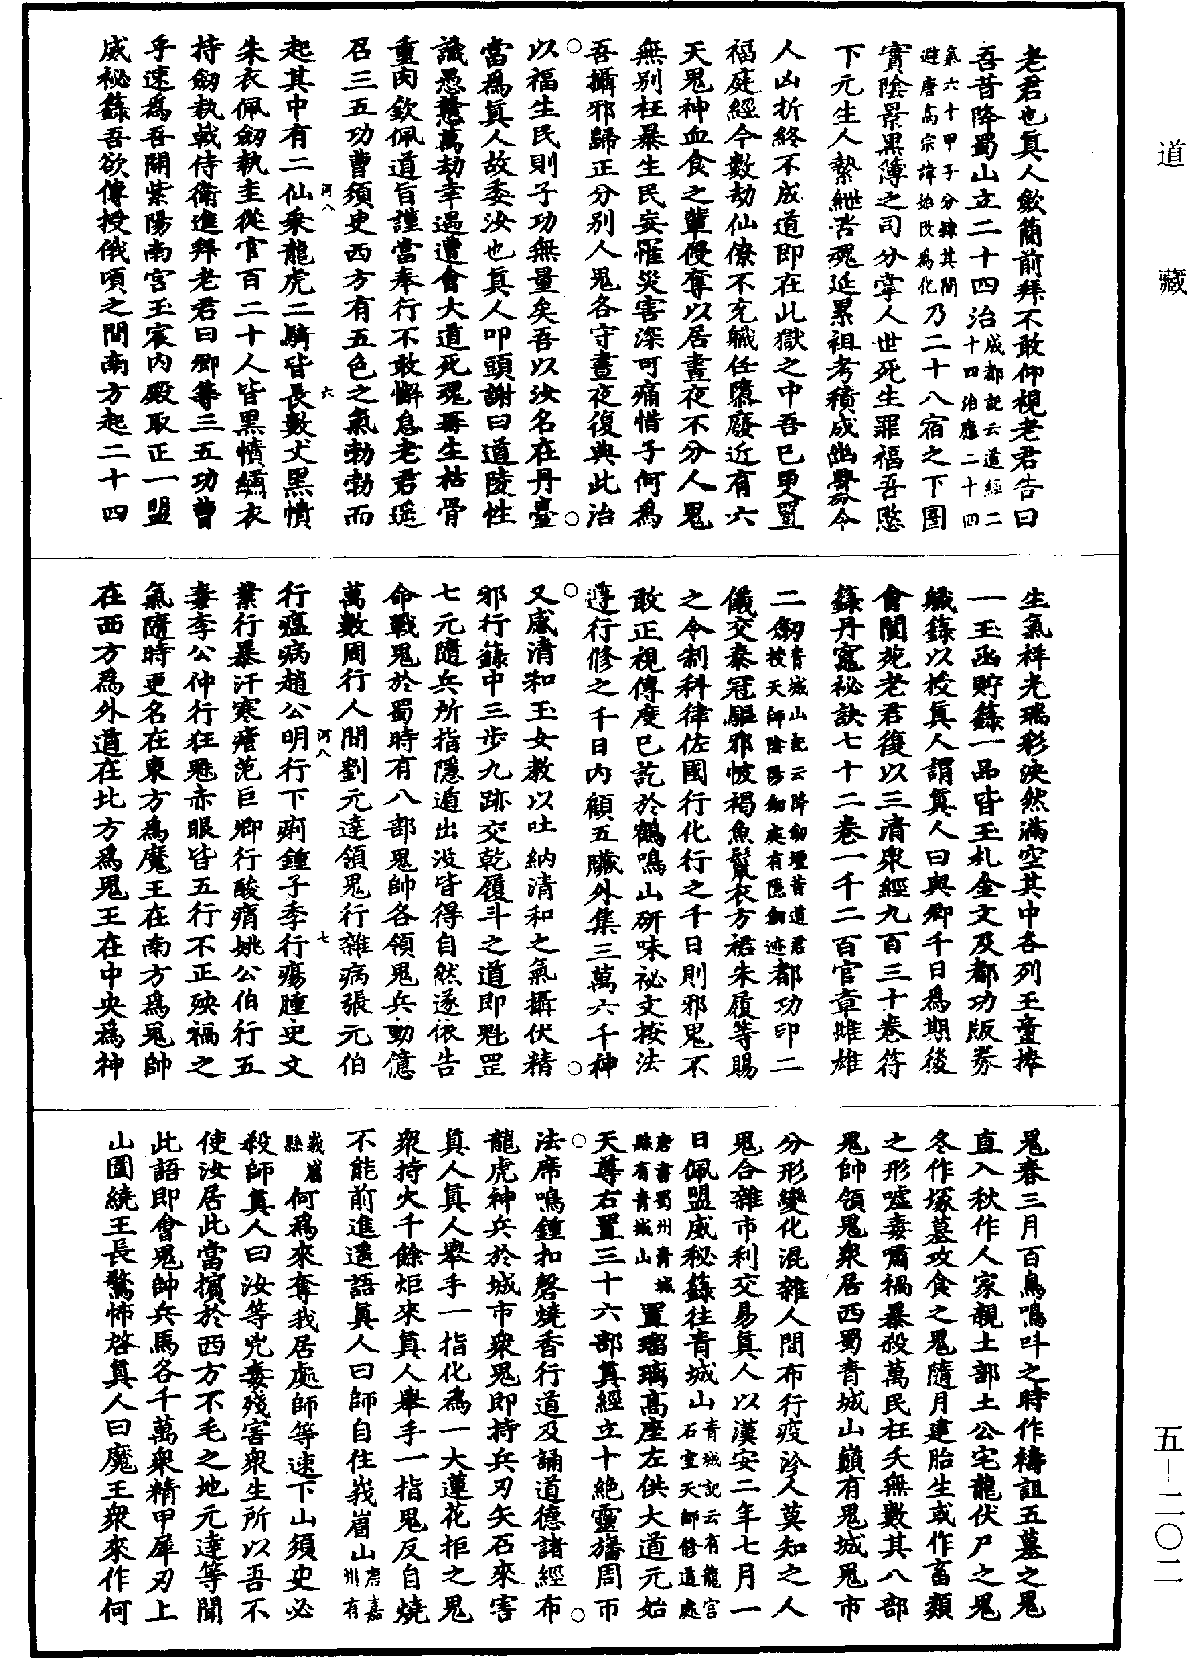 道藏
老君也真人斂簡前拜不敢仰視老君告曰
吾昔降蜀山立二十四治成都記云道經二十四治應二十四
氣六十甲子分隸其間避唐高宗諱治改為化乃二十八宿之下圖
冥陰景黑簿之司分掌人世死生罪福吾愍
下元生人縶紲苦魂延累祖考積成幽暑今
人山折終不成道即在此獄之中吾已更置
福庭經今數劫仙僚不充職任隳廢近有六
天鬼神血食之輩侵奪以居晝夜不分人鬼
無別枉暴生民妄罹災害深可痛惜子何為
吾攝邪歸正分別人鬼各守晝夜復典此治
以福生民則子功無量矣吾以汝名在丹臺
當為真人故委汝也真人叩頭謝曰道陵性
識愚憃萬劫幸遇遭會大道死魂再生枯骨
重肉欽佩道旨謹當奉行不敢懈怠老君遥
召三五功曹須臾西方有五色之氣勃勃而
河八 六
起其中有二仙乘龍虎二騎皆長數丈黑幘
朱衣佩劒執圭從官百二十人皆黑幘繡衣
持劒執戟侍衛進拜老君曰卿等三五功曹
乎速為吾開紫陽南宮玉宸內殿取正一盟
威祕籙吾欲傳授俄頃之間南方起二十四
生氣祥光瑞彩泱然滿空其中各列玉童捧
一玉函貯籙一品皆玉札金文及都功版券
職籙以授真人謂真人曰與卿千日為期後
會閬苑老君復以三清衆經九百三十卷符
籙丹竈祕訣七十二卷一千二百官章雌雄
二劒青城山記云降劒壇昔道君授天師陰陽劒處有隱劒迹都功印二
儀交泰冠驅邪帔褐魚鬣衣方裙朱履等賜
之令制科律佐國行化行之千日則邪鬼不
敢正視傳度已訖於鶴鳴山研味祕文按法
遵行修之千日內顧五臟外集三萬六千神
又感清和玉女教以吐納清和之氣攝伏精
邪行籙中三步九跡交乾履斗之道即魁罡
七元隨兵所指隱遁出沒皆得自然遂依告
命戰鬼於蜀時有八部鬼帥各領鬼兵動億
萬數周行人間劉元達領鬼行雜病張元伯
河八 七
行瘟病趙公明行下痢鍾子季行瘍腫史文
業行暴汗寒瘧范巨卿行酸痟姚公伯行五
毒李公仲行狂魅赤眼皆五行不正殃禍之
氣隨時更名在東方為魔王在南方為鬼帥
在西方為外道在北方為鬼王在中央為神
鬼春三月百鳥鳴呌之時作禱詛五墓之鬼
直入秋作人家親土部土公宅龍伏尸之鬼
冬作塚墓攻食之鬼隨月建胎生或作畜類
之形噓毒嘯禍暴殺萬民枉夭無數其八部
鬼帥領鬼衆居西蜀青城山巔有鬼城鬼市
分形變化混雜人間布行疫沴人莫知之人
鬼合雜市利交易真人以漢安二年七月一
日佩盟威秘籙往青城山青城記云有龍宮石室天師修道處
唐書蜀州青城縣有青城山置瑠璃高座左供大道元始
天尊右置三十六部真經立十絕靈旛周帀
法席鳴鍾扣磬燒香行道及誦道德諸經布
龍虎神兵於城市衆鬼即持兵刃矢石來害
真人真人舉手一指化為一大蓮花拒之鬼
衆持火千餘炬來真人舉手一指鬼反自燒
不能前進遥語真人曰師自住峩嵋山唐嘉州有
峩嵋縣何為來奪我居處師等速下山須臾必
殺師真人曰汝等兇毒殘害衆生所以吾不
使汝居此當擯於西方不毛之地元達等聞
此語即會鬼帥兵馬各千萬衆精甲犀刃上
山圍繞王長驚怖啓真人曰魔王衆來作何
五-二〇二